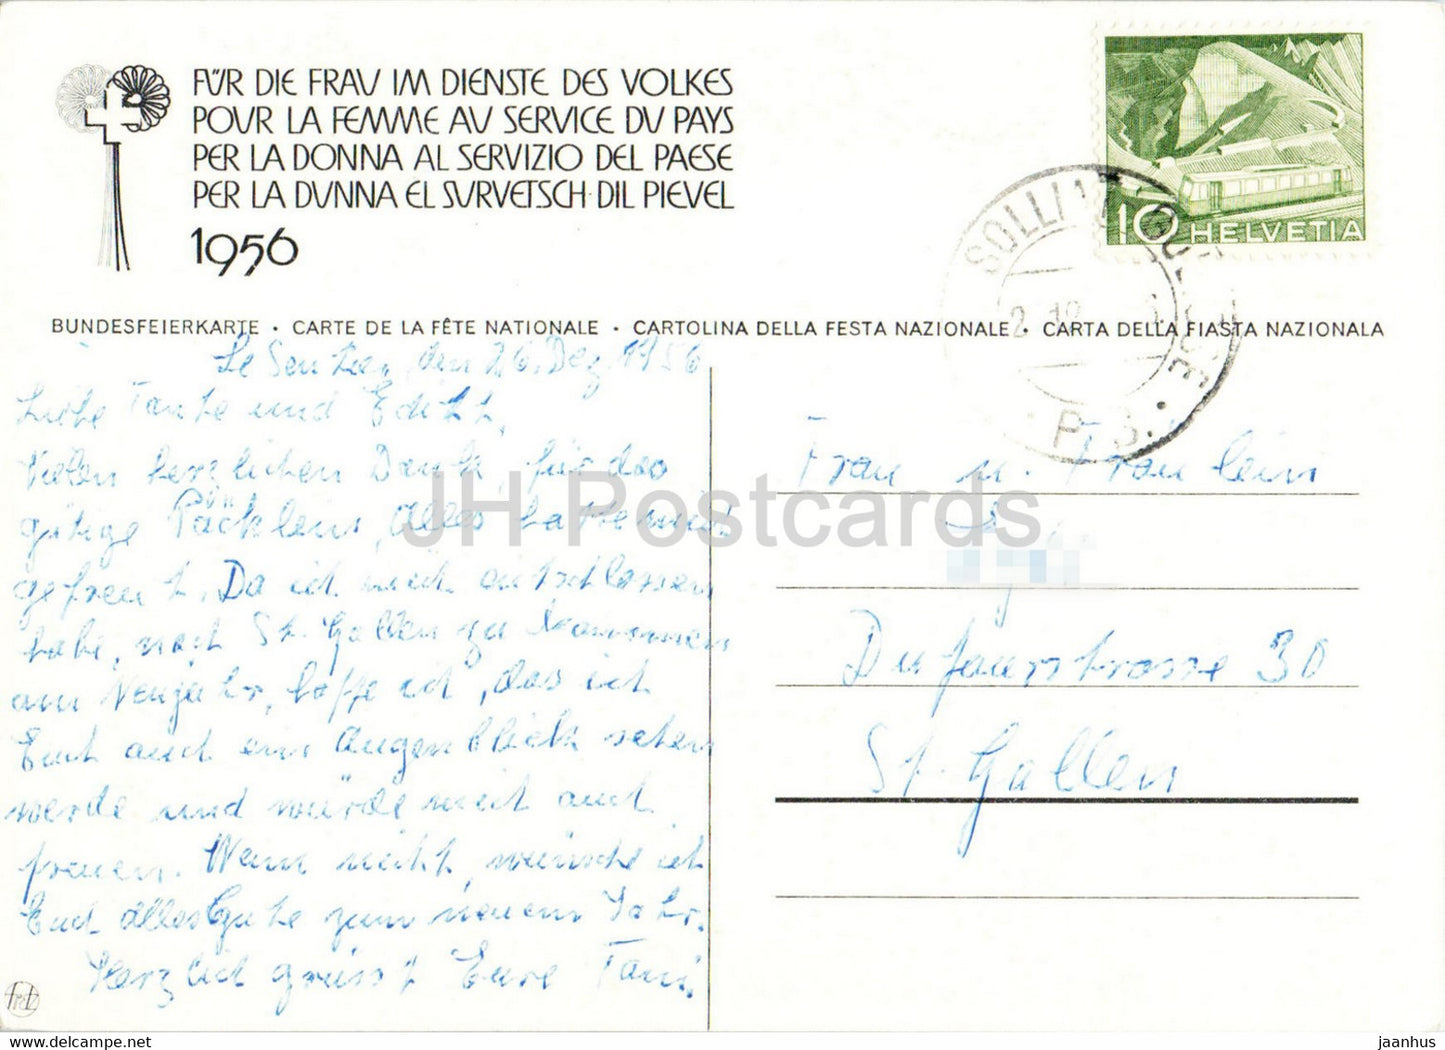 FÜR DIE FRAU IM DIENSTE DES VOLKES
POUR LA FEMME AU SERVICE DU PAYS
PER LA DONNA AL SERVIZIO DEL PAESE
PER LA DUNNA EL SURVETSCH DIL PIEVEL
1956
10 HELVETIA
SOLLIAT
P. S.
BUNDESFEIERKARTE · CARTE DE LA FÊTE NATIONALE · CARTOLINA DELLA FESTA NAZIONALE · CARTA DELLA FIASTA NAZIONALA
Le Sentier, den 26. Dez. 1956
Liebe Tante und Edith,
Vielen herzlichen Dank, für das
gütige Päcklein, alles hat mich
gefreut. Da ich mich entschlossen
habe, nach St. Gallen zu kommen
am Neujahr, hoffe ich, das ich
Euch auch ein Augenblick sehen
werde und würde mich auch
freuen. Wenn nicht, wünsche ich
Euch alles Gute zum neuen Jahr.
Herzlich grüsst Eure Tani.
Frau u. Fraulein
Dufourstrasse 30
St. Gallen
JH Postcards
jaanhus